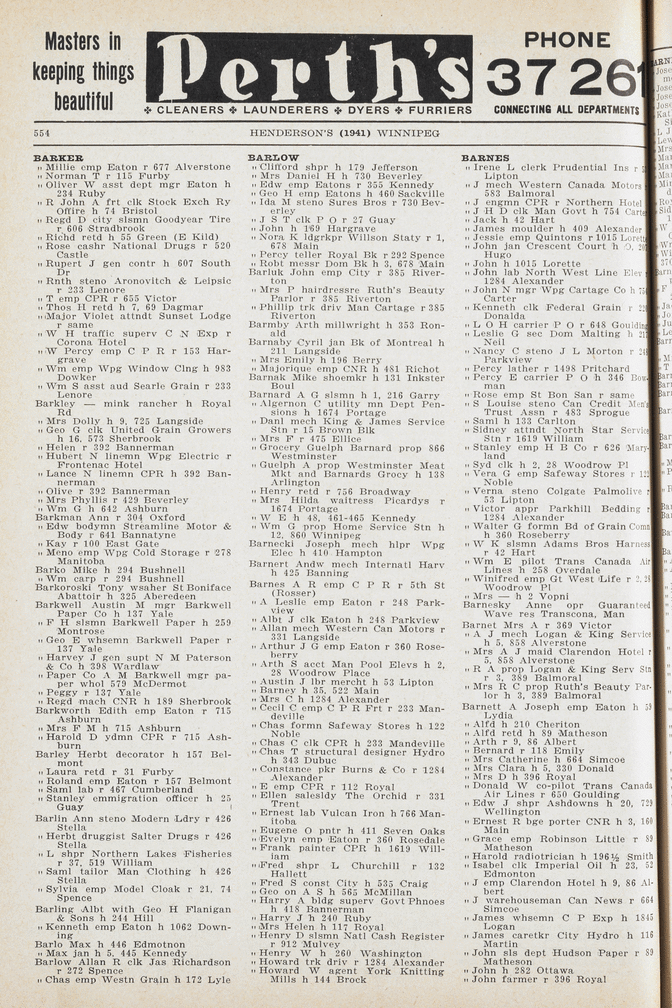 Masters in
keeping things
beautiful
Perth's
❖ CLEANERS ❖ LAUNDERERS ❖ DYERS ❖ FURRIERS
PHONE
37 261
CONNECTING ALL DEPARTMENTS
554
HENDERSON'S (1941) WINNIPEG
BARKER
" Millie emp Eaton r 677 Alverstone
" Norman T r 115 Furby
" Oliver W asst dept mgr Eaton h
234 Ruby
" R John A frt clk Stock Exch Ry
Offire h 74 Bristol
" Regd D city slsmn Goodyear Tire
r 606 Stradbrook
" Richd retd h 55 Green (E Kild)
" Rose cashr National Drugs r 520
Castle
" Rupert J gen contr h 607 South
Dr
" Rnth steno Aronovitch & Leipsic
r 233 Lenore
" T emp CPR r 655 Victor
" Thos H retd h 7, 69 Dagmar
" Major Violet attndt Sunset Lodge
r same
" W H traffic superv C N Exp r
Corona Hotel
" W Percy emp C P R r 153 Har-
grave
" Wm emp Wpg Window Clng h 983
Dowker
" Wm S asst aud Searle Grain r 233
Lenore
Barkley — mink rancher h Royal
Rd
" Mrs Dolly h 9, 725 Langside
" Geo G clk United Grain Growers
h 16, 573 Sherbrook
" Helen r 392 Bannerman
" Hubert N linemn Wpg Electric r
Frontenac Hotel
" Lance N linemn CPR h 392 Ban-
nerman
" Olive r 392 Bannerman
" Mrs Phyllis r 429 Beverley
" Wm G h 642 Ashburn
Barkman Ann r 304 Oxford
" Edw bodymn Streamline Motor &
Body r 641 Bannatyne
" Kay r 100 East Gate
" Meno emp Wpg Cold Storage r 278
Manitoba
Barko Mike h 294 Bushnell
" Wm carp r 294 Bushnell
Barkoroski Tony washer St Boniface
Abattoir h 325 Aberdeen
Barkwell Austin W mgr Barkwell
Paper Co h 137 Yale
" F H slsmn Barkwell Paper h 259
Montrose
" Geo E whsemn Barkwell Paper r
137 Yale
" Harvey J gen supt N M Paterson
& Co h 398 Wardlaw
" Paper Co A M Barkwell mgr pa-
per whol 579 McDermot
" Peggy r 137 Yale
" Regd mach CNR h 189 Sherbrook
Barkworth Edith emp Eaton r 715
Ashburn
" Mrs F M h 715 Ashburn
" Harold D ydmn CPR r 715 Ash-
burn
Barley Herbt decorator h 157 Bel-
mont
" Laura retd r 31 Furby
" Roland emp Eaton r 157 Belmont
" Saml lab r 467 Cumberland
" Stanley emmigration officer h 25
Guay
Barlin Ann steno Modern Ldry r 426
Stella
" Herbt druggist Salter Drugs r 426
Stella
" L shpr Northern Lakes Fisheries
r 37, 519 William
" Saml tailor Man Clothing h 426
Stella
" Sylvia emp Model Cloak r 21, 74
Spence
Barling Albt with Geo H Flanigan
& Sons h 244 Hill
" Kenneth emp Eaton h 1062 Down-
ing
Barlo Max h 446 Edmotnon
" Max jan h 5, 445 Kennedy
Barlow Allan R clk Jas Richardson
r 272 Spence
" Chas emp Westn Grain h 172 Lyle
BARLOW
" Clifford shpr h 179 Jefferson
" Mrs Daniel H h 730 Beverley
" Edw emp Eatons r 355 Kennedy
" Geo H emp Eatons h 460 Sackville
" Ida M steno Sures Bros r 730 Bev-
erley
" J S T clk P O r 27 Guay
" John h 169 Hargrave
" Nora K ldgrkpr Willson Staty r 1,
678 Main
" Percy teller Royal Bk r 292 Spence
" Robt messr Dom Bk h 3, 678 Main
Barluk John emp City r 385 River-
ton
" Mrs P hairdressre Ruth's Beauty
Parlor r 385 Riverton
" Phillip trk driv Man Cartage r 385
Riverton
Barmby Arth millwright h 353 Ron-
ald
Barnaby Cyril jan Bk of Montreal h
211 Langside
" Mrs Emily h 196 Berry
" Majorique emp CNR h 481 Richot
Barnak Mike shoemkr h 131 Inkster
Boul
Barnard A G slsmn h 1, 216 Garry
" Algernon C utility mn Dept Pen-
sions h 1674 Portage
" Danl mech King & James Service
Stn r 15 Brown Blk
" Mrs F r 475 Ellice
" Grocery Guelph Barnard prop 866
Westminster
" Guelph A prop Westminster Meat
Mkt and Barnards Grocy h 138
Arlington
" Henry retd r 756 Broadway
" Mrs Hilda waitress Picardys r
1674 Portage
" W E h 48, 461-465 Kennedy
" Wm G prop Home Service Stn h
12, 860 Winnipeg
Barnecki Joseph mech hlpr Wpg
Elec h 410 Hampton
Barnert Andw mech Internatl Harv
h 425 Banning
Barnes A R emp C P R r 5th St
(Rosser)
" A Leslie emp Eaton r 248 Park-
view
" Albt J clk Eaton h 248 Parkview
" Allan mech Western Can Motors r
331 Langside
" Arthur J G emp Eaton r 360 Rose-
berry
" Arth S acct Man Pool Elevs h 2,
28 Woodrow Place
" Austin J lbr mercht h 53 Lipton
" Barney h 35, 522 Main
" Mrs C h 1284 Alexander
" Cecil C emp C P R Frt r 233 Man-
deville
" Chas formn Safeway Stores h 122
Noble
" Chas C clk CPR h 233 Mandeville
" Chas T structural designer Hydro
h 343 Dubuc
" Constance pkr Burns & Co r 1284
Alexander
" E emp CPR r 112 Royal
" Ellen salesldy The Orchid r 331
Trent
" Ernest lab Vulcan Iron h 766 Man-
itoba
" Eugene O pntr h 411 Seven Oaks
" Evelyn emp Eaton r 360 Rosedale
" Frank painter CPR h 1619 Will-
iam
" Fred shpr L Churchill r 132
Hallett
" Fred S const City h 535 Craig
" Geo on A S h 565 McMillan
" Harry A bldg superv Govt Phnoes
h 418 Bannerman
" Harry J h 240 Ruby
" Mrs Helen h 117 Royal
" Henry D slsmn Natl Cash Register
r 912 Mulvey
" Henry W h 260 Washington
" Howard trk driv r 1284 Alexander
" Howard W agent York Knitting
Mills h 144 Brock
BARNES
" Irene L clerk Prudential Ins r
Lipton
" J mech Western Canada Motors
583 Balmoral
" J engmn CPR r Northern Hotel
" J H D clk Man Govt h 754
" Jack h 42 Hart
" James moulder h 409 Alexander
" Jessie emp Quintons r 1015
" John jan Crescent Court h
Hugo
" John h 1015 Lorette
" John lab North West Line
1284 Alexander
" John N mgr Wpg Cartage Co h
Carter
" Kenneth clk Federal Grain r
Donalda
" L O H carrier P O r 648 Goulding
" Leslie G sec Dom Malting h
Neil
" Nancy C steno J L Morton r
Parkview
" Percy lather r 1498 Pritchard
" Percy E carrier P O h 346 Bow-
man
" Rose emp St Bon San r same
" S Louise steno Can Credit Men's
Trust Assn r 483 Sprogue
" Saml h 133 Carlton
" Sidney attndt North Star Service
Stn r 1619 William
" Stanley emp H B Co r 626 Mary-
land
" Syd clk h 2, 28 Woodrow Pl
" Vera G emp Safeway Stores r 122
Noble
" Verna steno Colgate Palmolive r
53 Lipton
" Victor appr Parkhill Bedding r
1284 Alexander
" Walter G formn Bd of Grain Comn
h 360 Roseberry
" W K slsmn Adams Bros Harness
r 42 Hart
" Wm E pilot Trans Canada Air
Lines h 258 Overdale
" Winifred emp Gt West Life r 2, 28
Woodrow Pl
" Mrs — h 2 Vopni
Barnesky Anne opr Guaranteed
Wave res Transcona, Man
Barnet Mrs A r 369 Victor
" A J mech Logan & King Service
h 5, 858 Alverstone
" Mrs A J maid Clarendon Hotel r
5, 858 Alverstone
" R A prop Logan & King Serv Stn
r 3, 389 Balmoral
" Mrs R C prop Ruth's Beauty Par-
lor h 3, 389 Balmoral
Barnett A Joseph emp Eaton h 59
Lydia
" Alfd h 210 Cheriton
" Alfd retd h 89 Matheson
" Arth r 9, 86 Albert
" Bernard r 118 Emily
" Mrs Catherine h 664 Simcoe
" Mrs Clara h 5, 330 Donald
" Mrs D h 396 Royal
" Donald W co-pilot Trans Canada
Air Lines r 650 Goulding
" Edw J shpr Ashdowns h 20, 729
Wellington
" Ernest R bge porter CNR h 3, 160
Main
" Grace emp Robinson Little r 89
Matheson
" Harold radiotrician h 196½ Smith
" Isabel clk Imperial Oil h 23, 52
Edmonton
" J emp Clarendon Hotel h 9, 86 Al-
bert
" J warehouseman Can News r 664
Simcoe
" James whsemn C P Exp h 1845
Logan
" James caretkr City Hydro h 116
Martin
" John sls dept Hudson Paper r 89
Matheson
" John h 282 Ottawa
" John farmer r 396 Royal